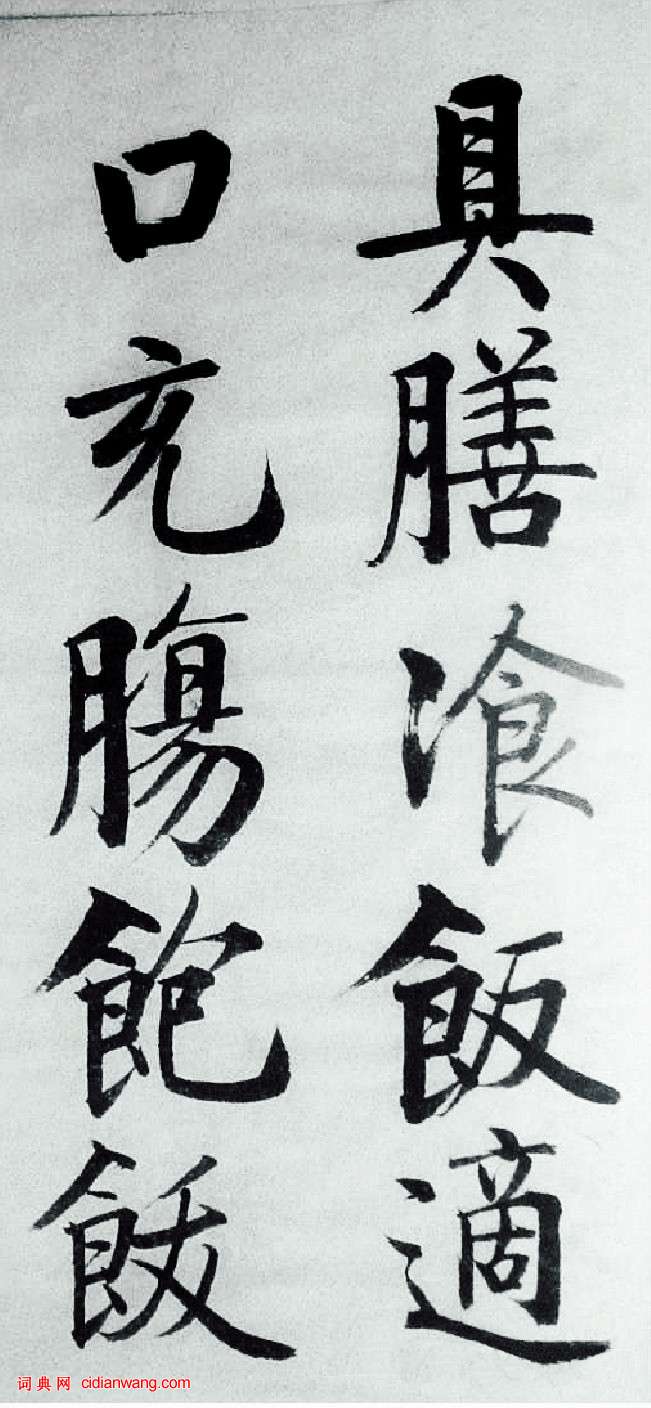 具膳飡飯適
口充腸飽飫
词典网 cidianwang.com